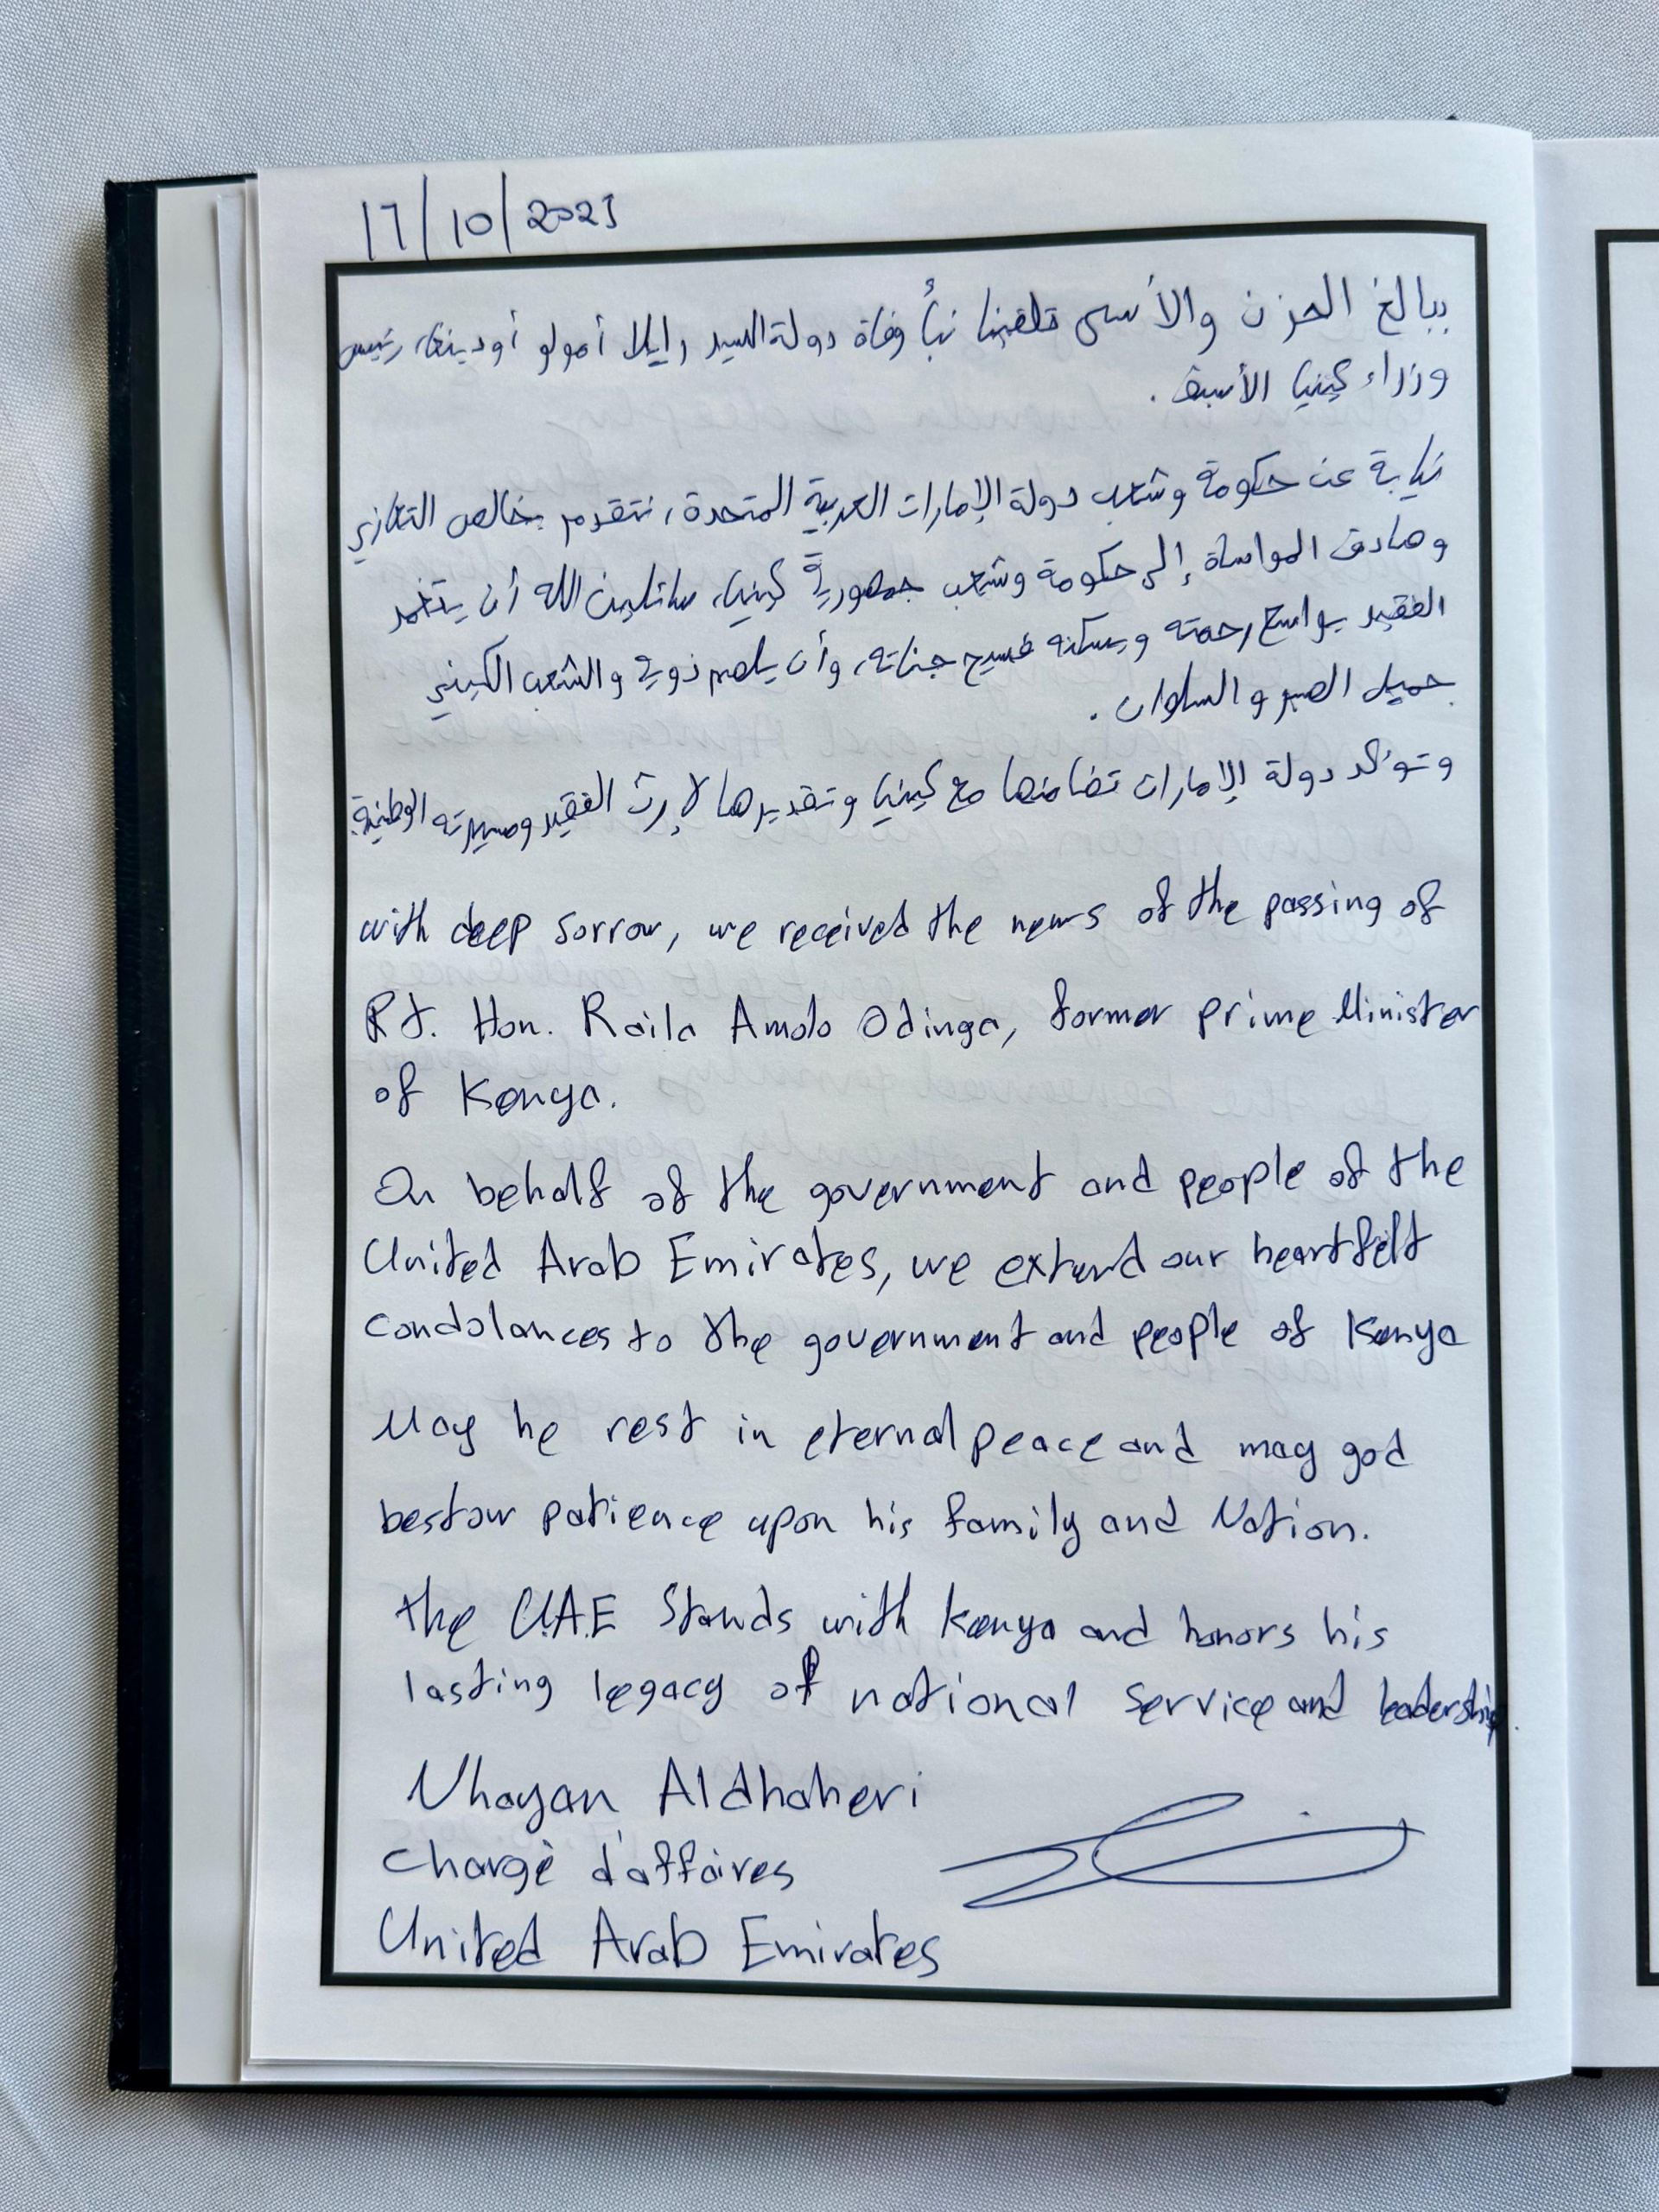 17/10/2025
ببالغ الحزن والأسى تلقينا نبأ وفاة دولة السيد رايلا أمولو أودينغا، رئيس
وزراء كينيا الأسبق.
نيابة عن حكومة وشعب دولة الإمارات العربية المتحدة، نتقدم بخالص التعازي
وصادق المواساة إلى حكومة وشعب جمهورية كينيا، سائلين الله أن يتغمد
الفقيد بواسع رحمته ويسكنه فسيح جناته، وأن يلهم ذويه والشعب الكيني
جميل الصبر والسلوان.
وتؤكد دولة الإمارات تضامنها مع كينيا وتقديرها لإرث الفقيد ومسيرته الوطنية.
with deep sorrow, we received the news of the passing of
Rt. Hon. Raila Amolo Odinga, former prime Minister
of Kenya.
On behalf of the government and people of the
United Arab Emirates, we extend our heartfelt
condolances to the government and people of Kenya
May he rest in eternal peace and may god
bestow patience upon his family and Nation.
the U.A.E Stands with Kenya and honors his
lasting legacy of national service and leadership.
Nhayan Aldhaheri
chargè d'affaires
United Arab Emirates